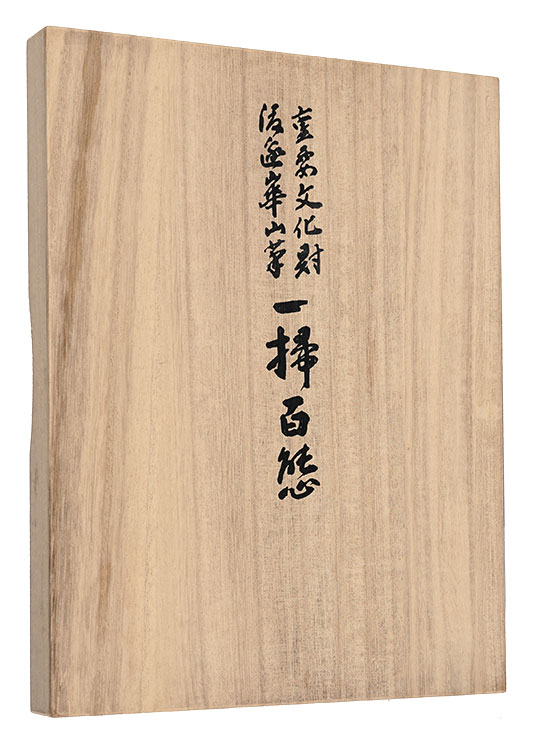 重要文化財
渡邉崋山筆
一掃百態